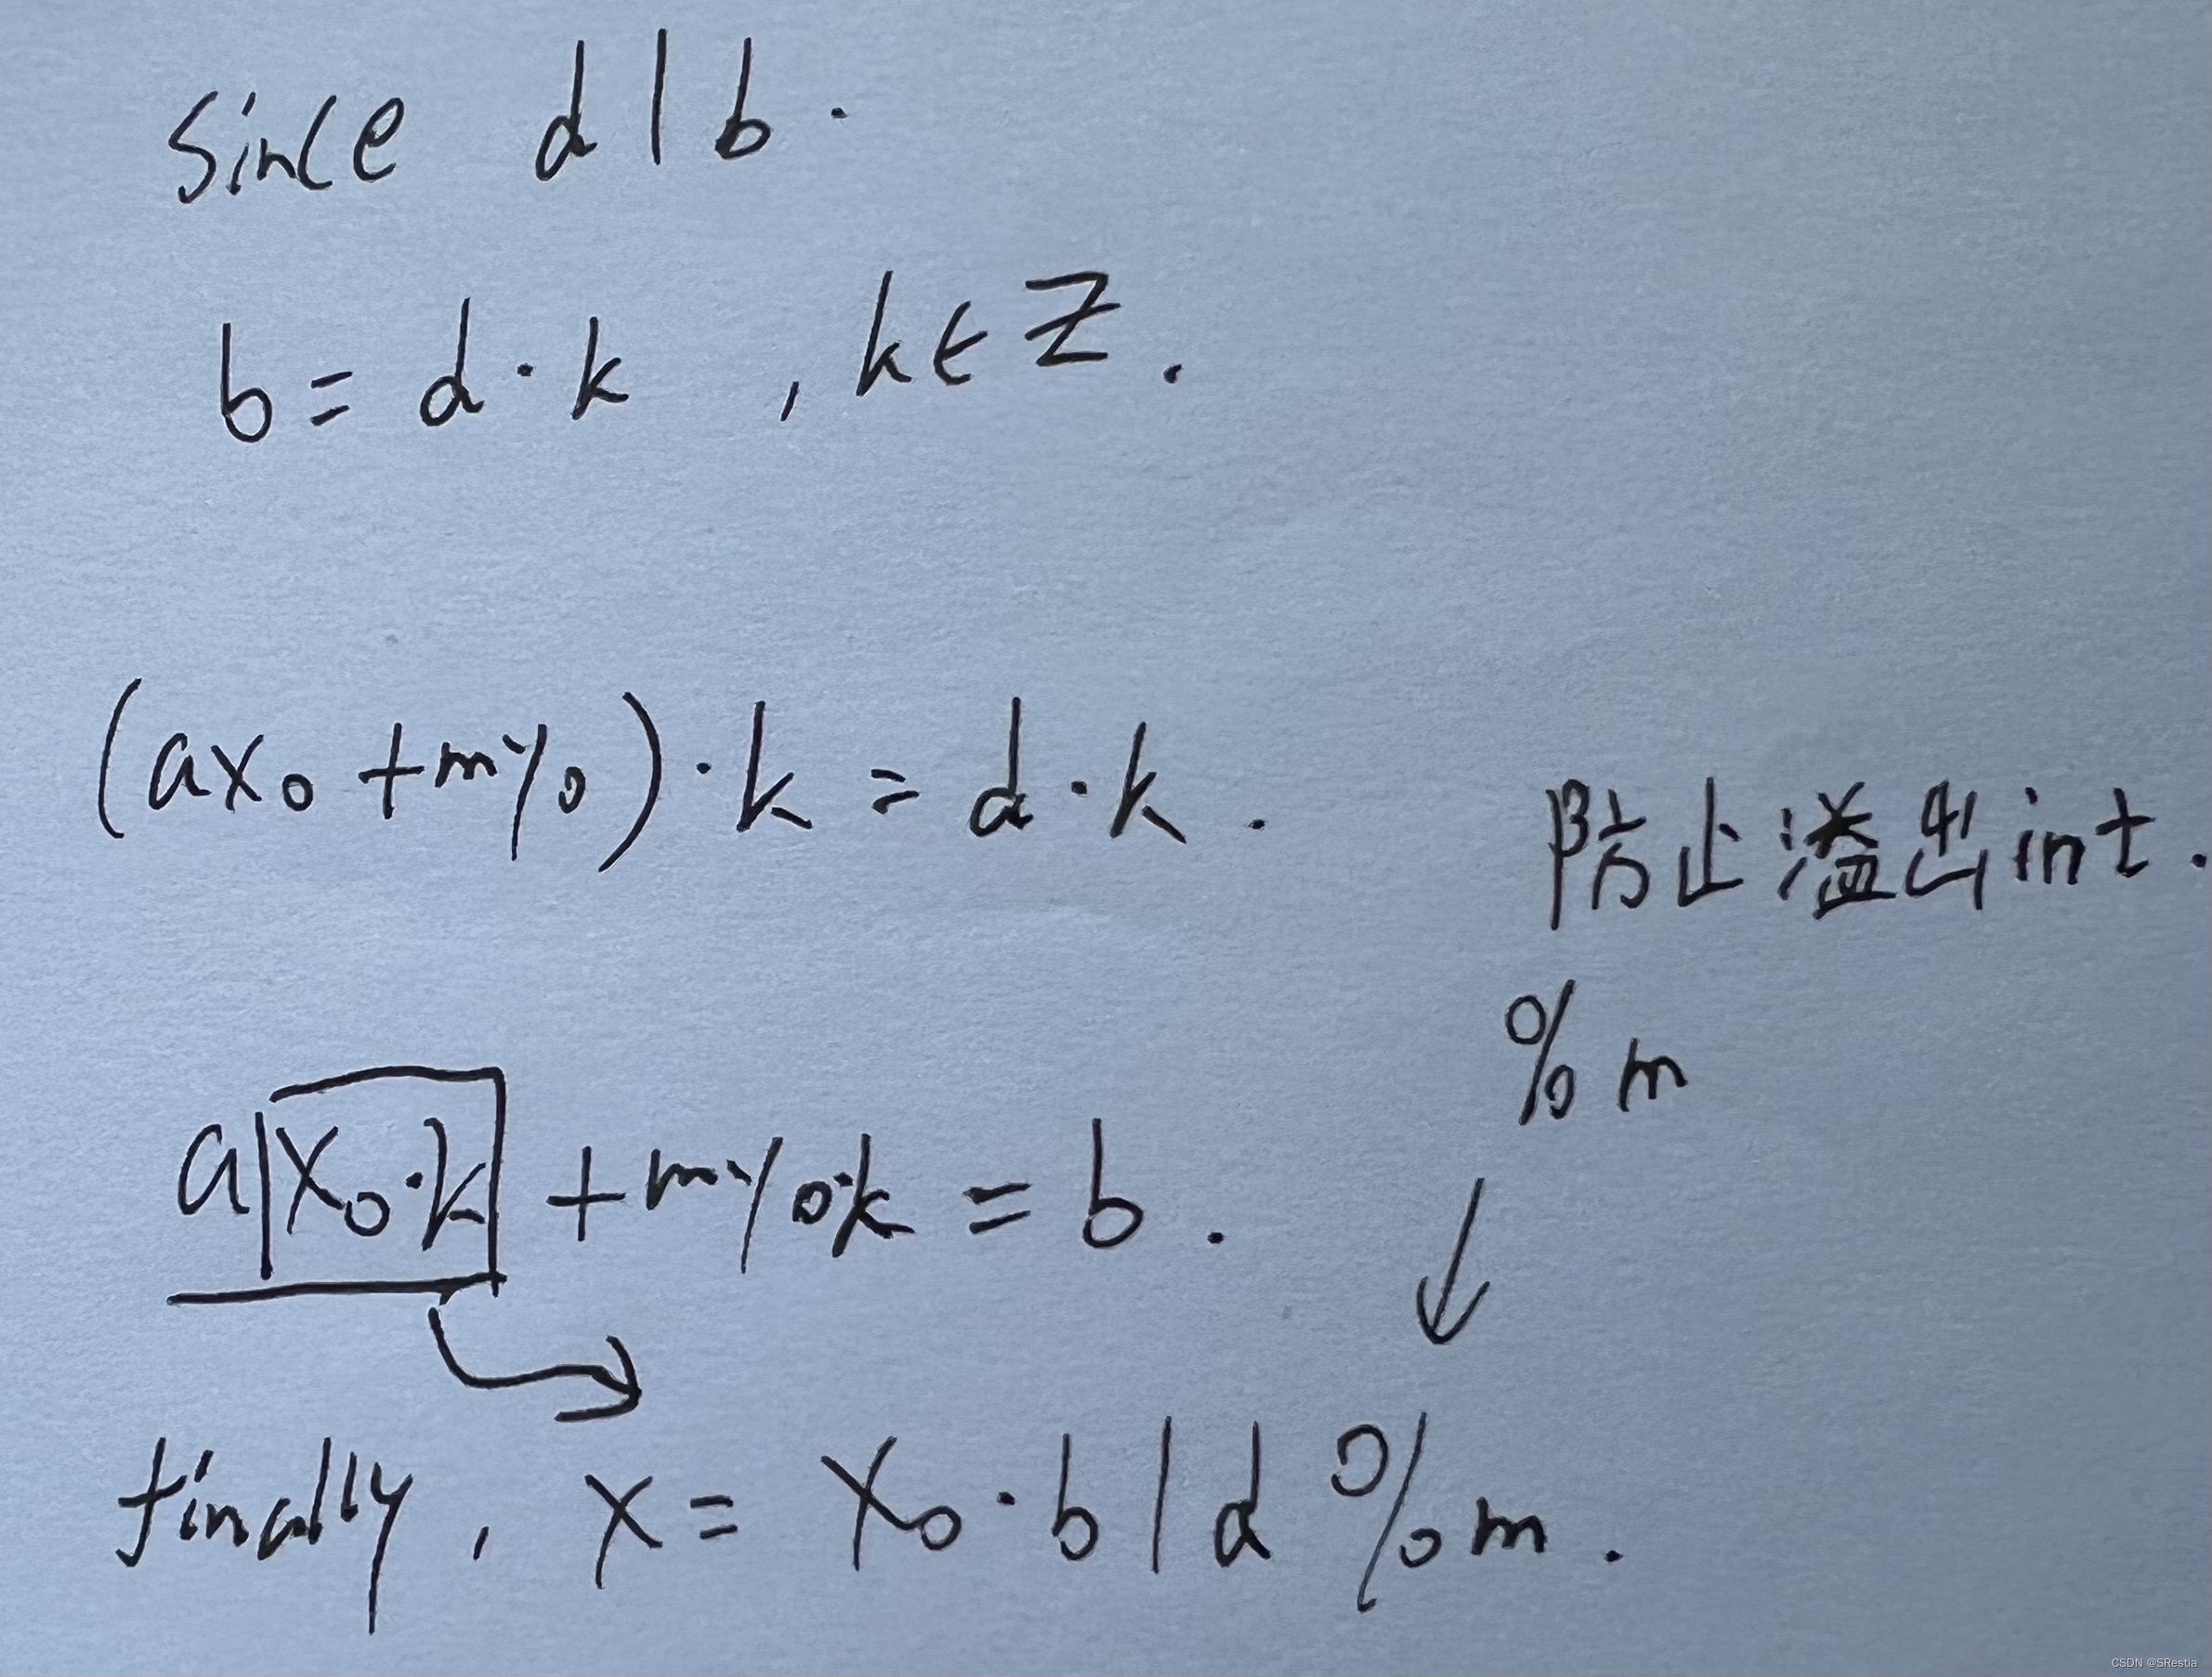 Since d | b .
b = d · k , k ∈ Z .
(ax₀ + my₀) · k = d · k .
防止溢出int .
% m
a x₀·k + my₀·k = b .
finally , x = x₀ · b | d % m .
CSDN @SRestia